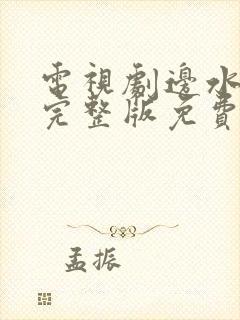 電視劇邊水
完整版免費
孟振